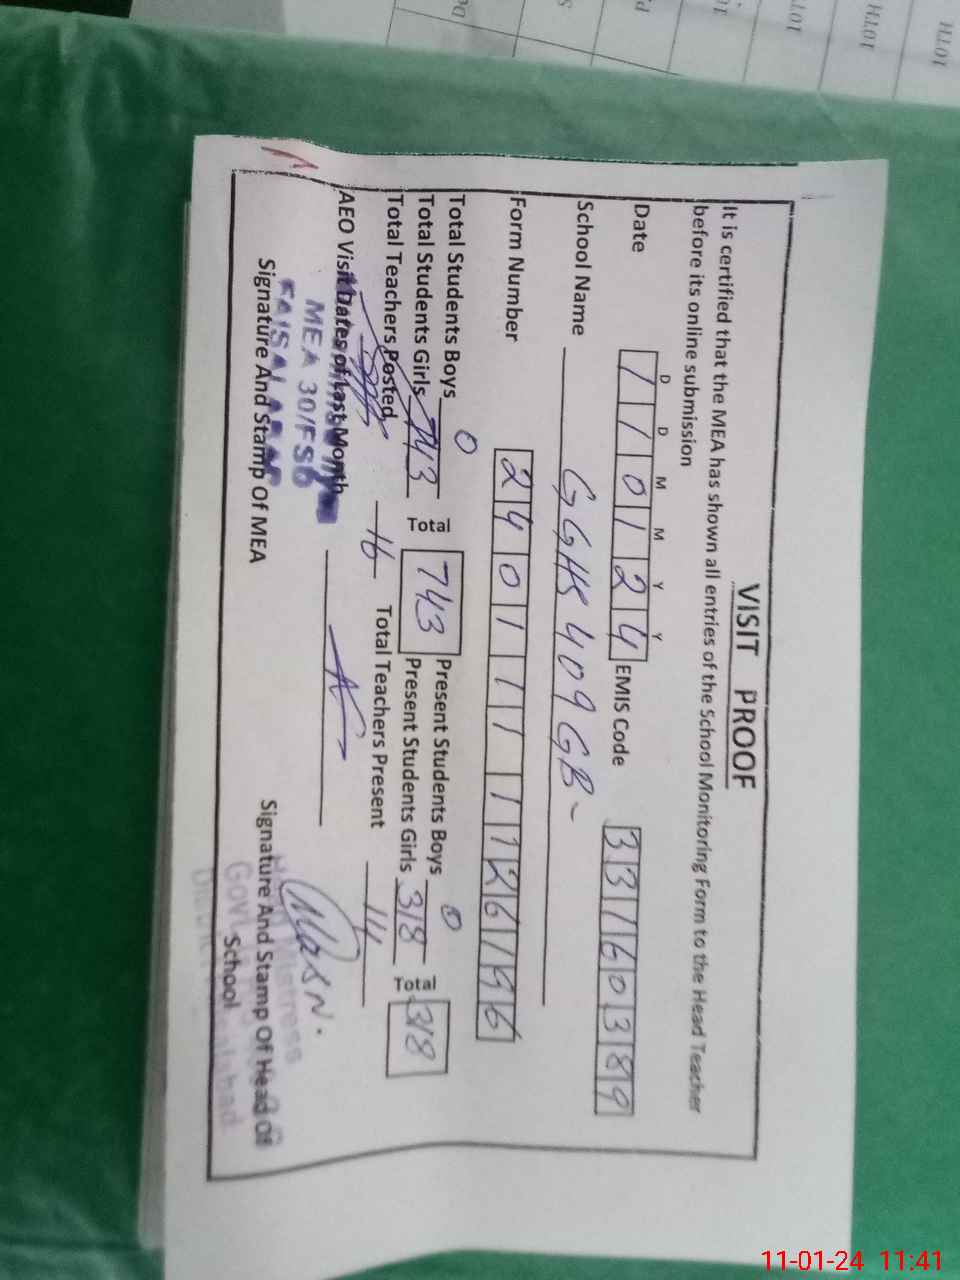 VISIT PROOF
It is certified that the MEA has shown all entries of the School Monitoring Form to the Head Teacher
before its online submission
D D M M Y Y
Date 1 1 0 1 2 4 EMIS Code 3 3 1 6 0 3 8 9
School Name GGHS 409 GB-
Form Number 2 4 0 1 1 1 1 1 2 6 1 9 6
Total Students Boys 0 Present Students Boys 0
Total Students Girls 743 Total 743 Present Students Girls 318 Total 318
Total Teachers Posted 16 Total Teachers Present 14
AEO Visit Dates of Last Month
MEA 30/FSD
FAISALABAD
Signature And Stamp Of MEA
Signature And Stamp Of Head Of
School
Govt
11-01-24 11:41